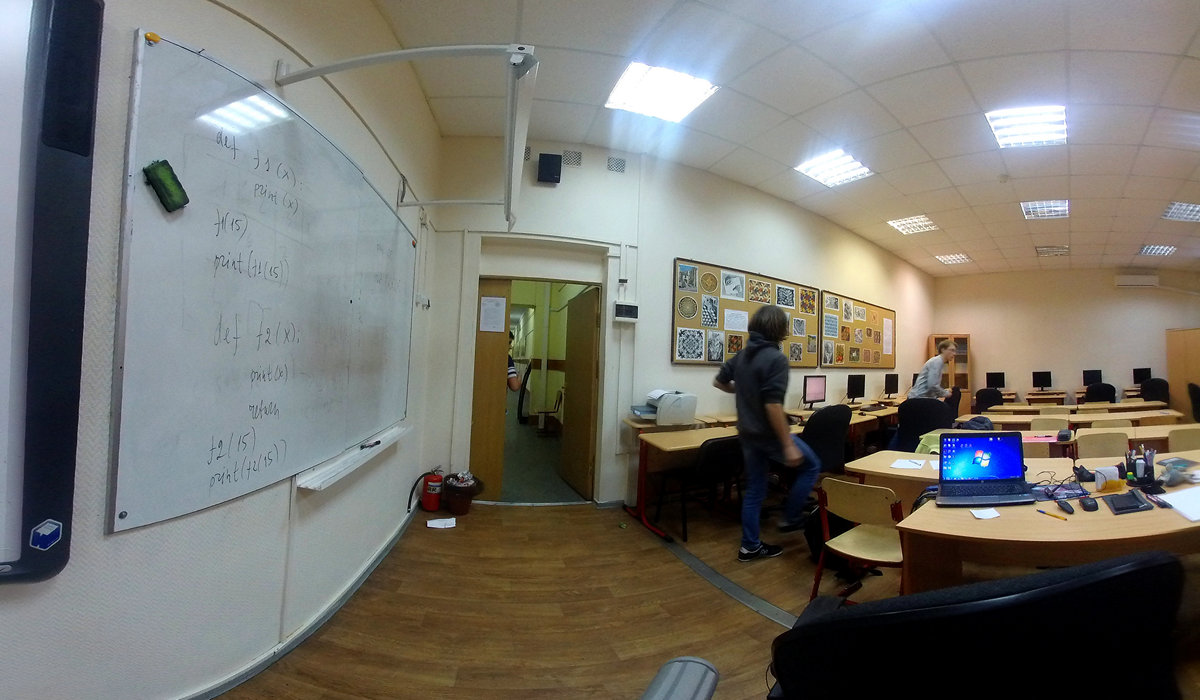 def f1(x):
print(x)
f1(15)
print(f1(15))
def f2(x):
print(x)
return
f2(15)
print(f2(15))